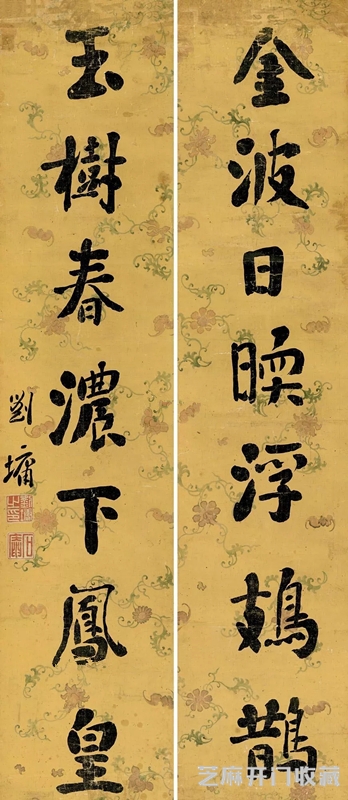 金波日暎浮鳷鵲
玉樹春濃下鳳皇
劉墉
芝麻开门收藏